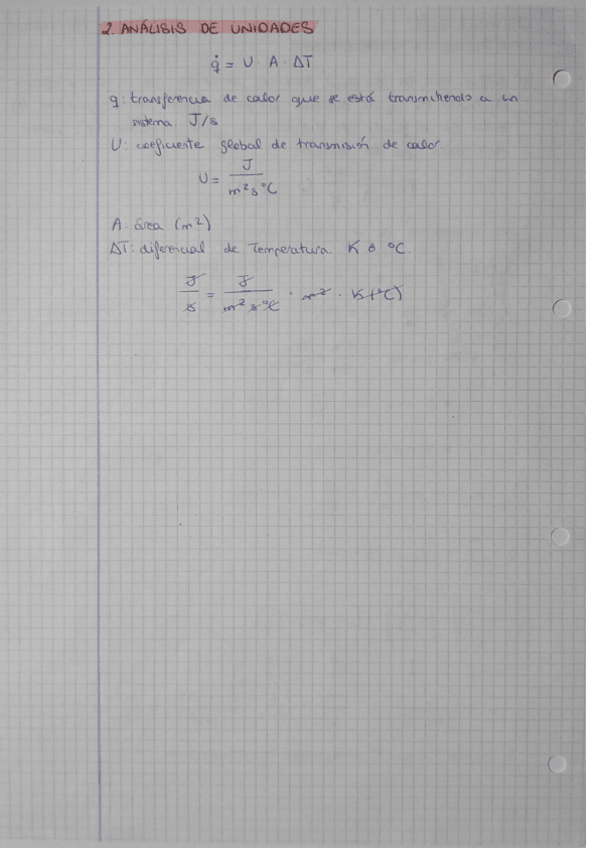 2. ANÁLISIS DE UNIDADES
q̇ = U · A · ΔT
q: transferencia de calor que se está transmitiendo a un
sistema J/s
U: coeficiente global de transmisión de calor
U = J / m² s °C
A: área (m²)
ΔT: diferencial de Temperatura K o °C.
J / s = J / m² s °C · m² · K (°C)